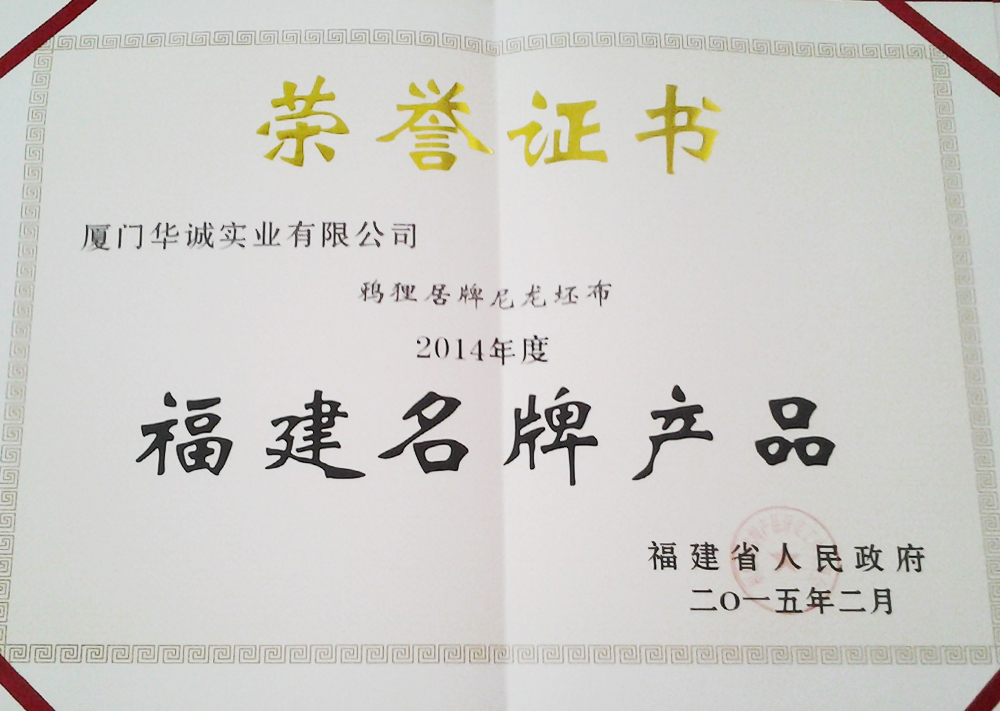 荣誉证书
厦门华诚实业有限公司
鸦狸居牌尼龙坯布
2014年度
福建名牌产品
福建省人民政府
二O一五年二月